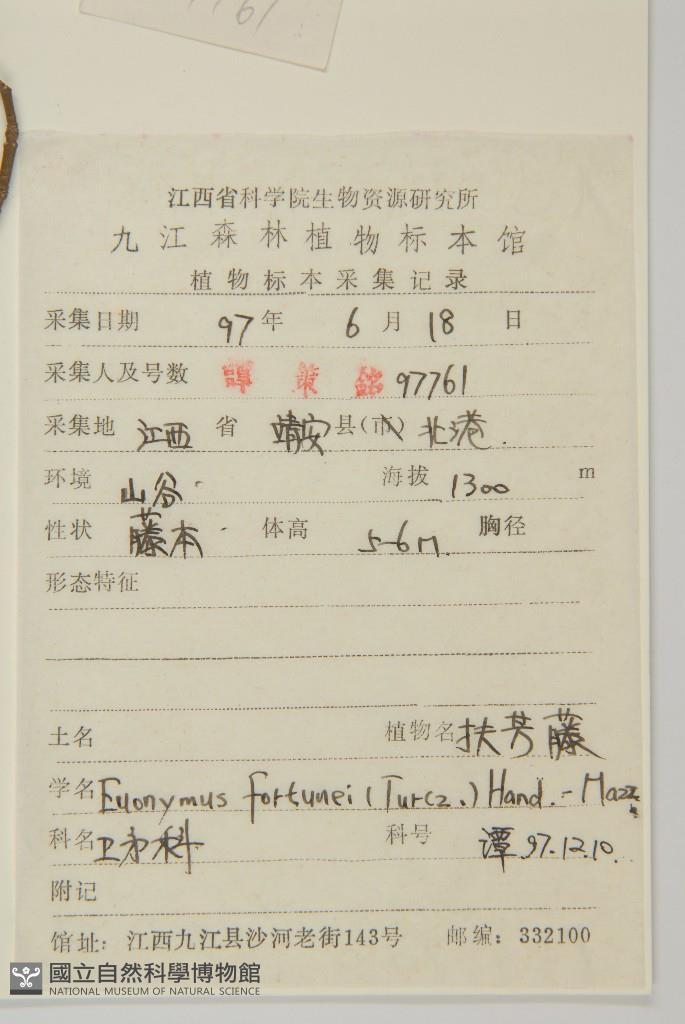 7761
江西省科学院生物资源研究所
九江森林植物标本馆
植物标本采集记录
采集日期 97年 6月 18日
采集人及号数 譚策銘 97761
采集地 江西省 靖安县(市) 北港.
环境 山谷. 海拔 1300 m
性状 藤本. 体高 5-6m. 胸径
形态特征
土名 植物名 扶芳藤
学名 Euonymus fortunei (Turcz.) Hand.-Mazz.
科名 卫矛科 科号 潭.97.12.10.
附记
馆址：江西九江县沙河老街143号 邮编：332100
國立自然科學博物館
NATIONAL MUSEUM OF NATURAL SCIENCE